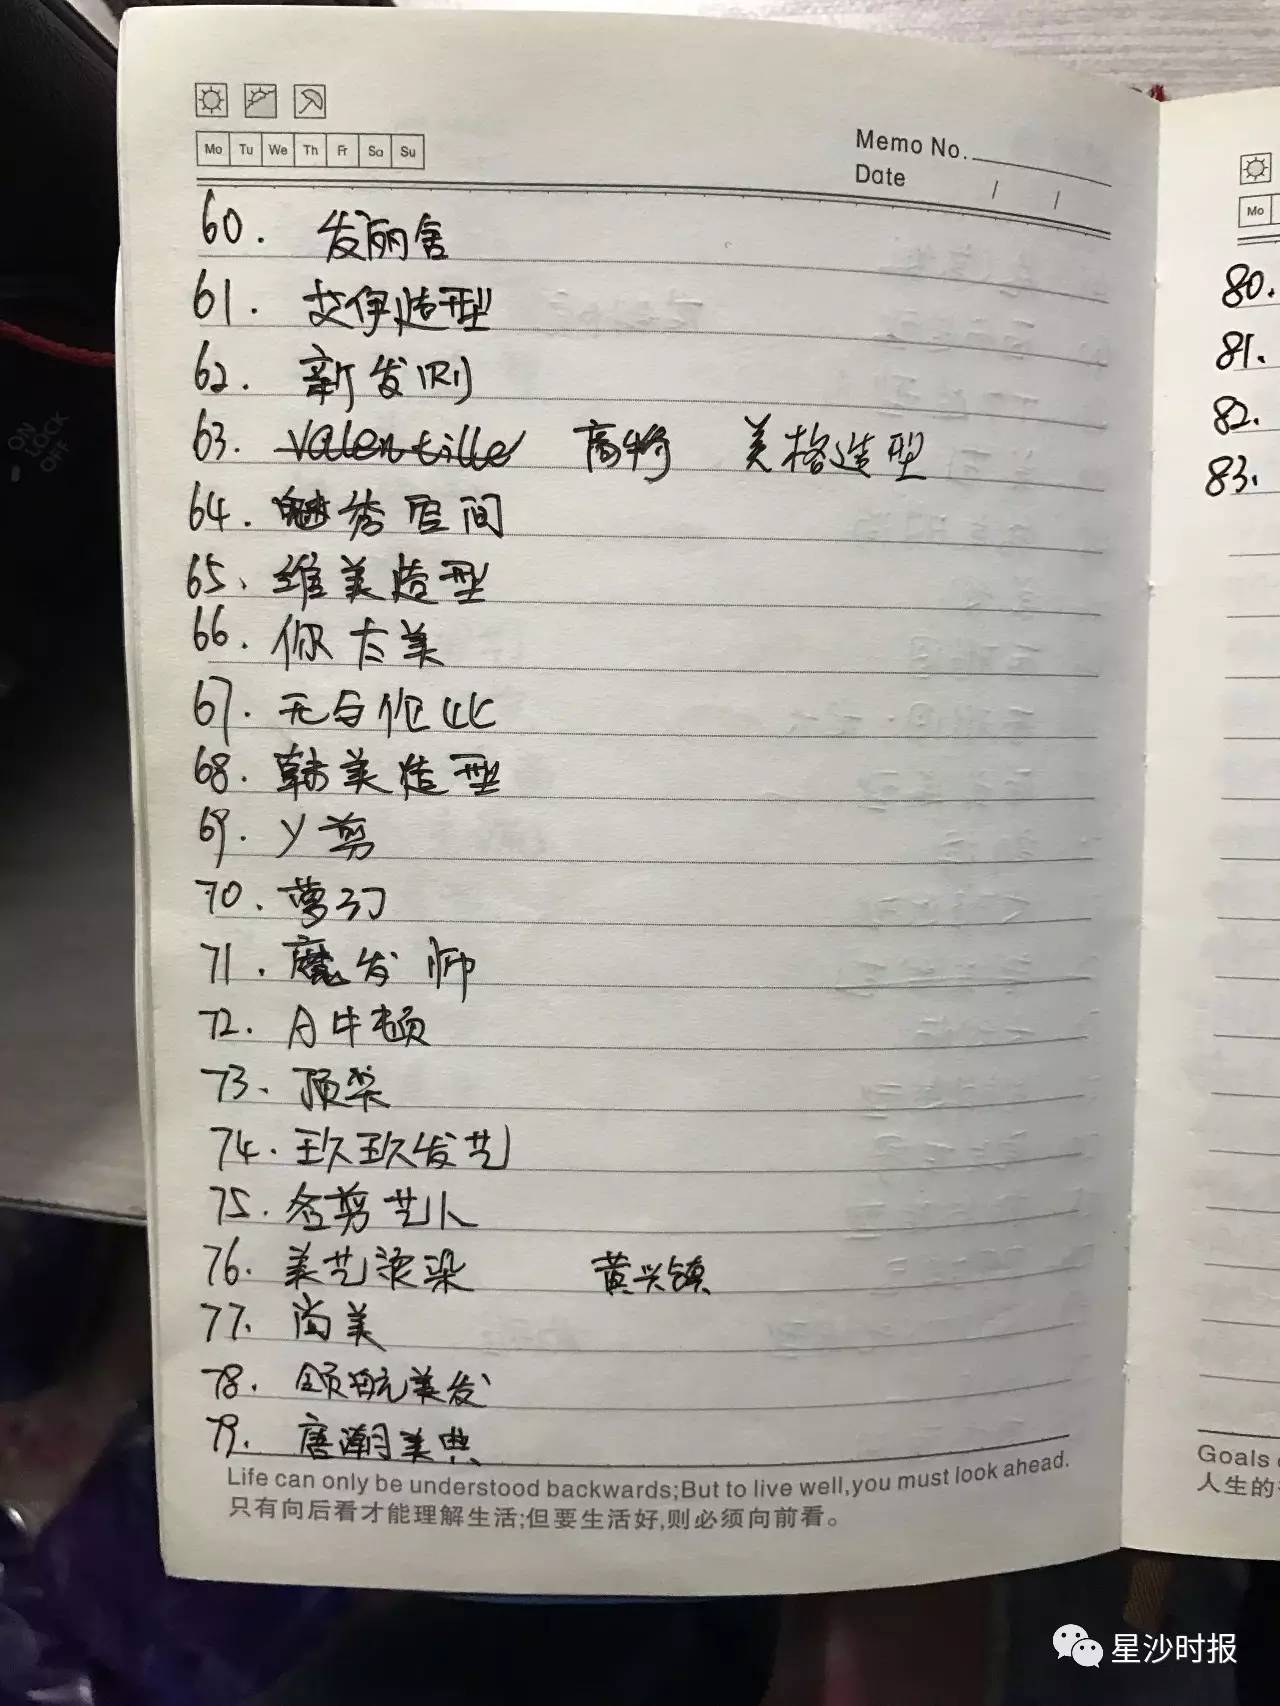 Mo Tu We Th Fr Sa Su
Memo No.
Date / /
60. 发丽舍
61. 艾伊造型
62. 新发职
63. Valentille 高椅 美格造型
64. 魅秀空间
65. 维美造型
66. 你太美
67. 无与伦比
68. 韩美造型
69. Y剪
70. 梦幻
71. 魔发师
72. A牛顿
73. 顶染
74. 玖玖发艺
75. 名剪艺人
76. 美艺烫染 黄兴镇
77. 尚美
78. 领航美发
79. 唐潮美典
Life can only be understood backwards;But to live well,you must look ahead.
只有向后看才能理解生活;但要生活好,则必须向前看。
Mo
80.
81.
82.
83.
Goals
人生的
ON
LOCK
OFF
星沙时报